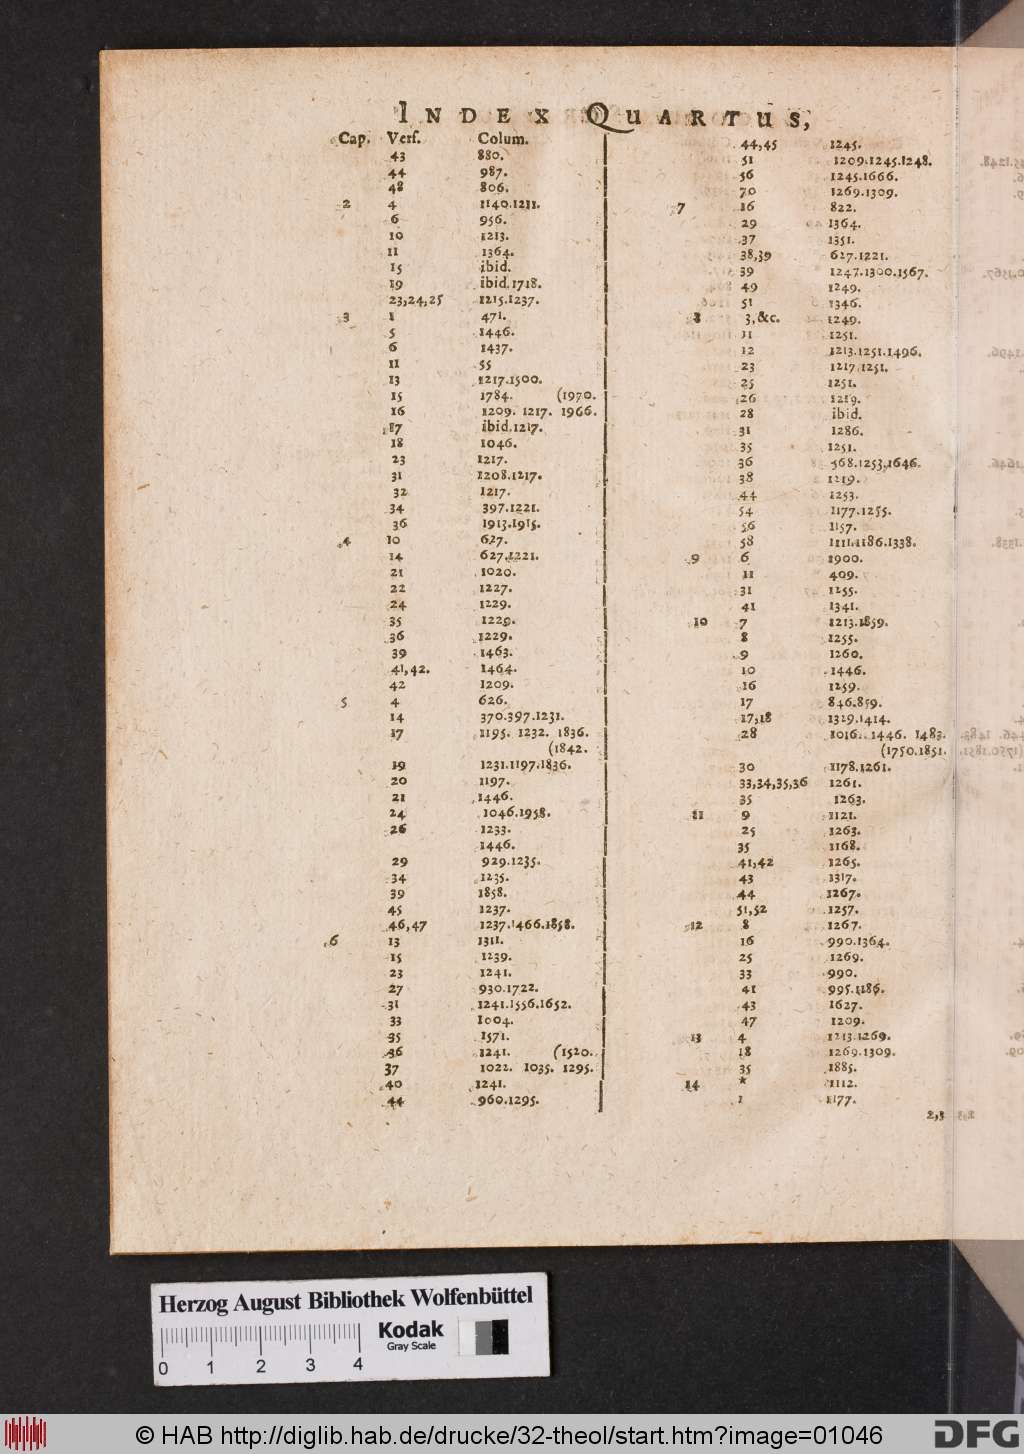 INDEX QUARTUS,
Cap. Vers. Colum.
43 880.
44 987.
48 806.
2 4 1140.1211.
6 956.
10 1213.
11 1364.
15 ibid.
19 ibid.1718.
23,24,25 1215.1237.
3 1 471.
5 1446.
6 1437.
11 55
13 1217.1500.
15 1784. (1970.
16 1209. 1217. 1966.
17 ibid.1217.
18 1046.
23 1217.
31 1208.1217.
32 1217.
34 397.1221.
36 1913.1915.
4 10 627.
14 627.1221.
21 1020.
22 1227.
24 1229.
35 1229.
36 1229.
39 1463.
41,42. 1464.
42 1209.
5 4 626.
14 370.397.1231.
17 1195. 1232. 1836.
(1842.
19 1231.1197.1836.
20 1197.
21 1446.
24 1046.1958.
26 1233.
1446.
29 929.1235.
34 1235.
39 1858.
45 1237.
46,47 1237.1466.1858.
6 13 1311.
15 1239.
23 1241.
27 930.1722.
31 1241.1556.1652.
33 1004.
35 1571.
36 1241. (1520.
37 1022. 1035. 1295.
40 1241.
44 960.1295.
44,45 1245.
51 1209.1245.1248.
56 1245.1666.
70 1269.1309.
7 16 822.
29 1364.
37 1351.
38,39 627.1221.
39 1247.1300.1567.
49 1249.
51 1346.
8 3,&c. 1249.
11 1251.
12 1213.1251.1496.
23 1217.1251.
25 1251.
26 1219.
28 ibid.
31 1286.
35 1251.
36 568.1253.1646.
38 1219.
44 1253.
54 1177.1255.
56 1157.
58 1111.1186.1338.
9 6 1900.
11 409.
31 1255.
41 1341.
10 7 1213.1859.
8 1255.
9 1260.
10 1446.
16 1259.
17 846.859.
17,18 1329.1414.
28 1016. 1446. 1483.
(1750.1851.
30 1178.1261.
33,34,35,36 1261.
35 1263.
11 9 1121.
25 1263.
35 1168.
41,42 1265.
43 1317.
44 1267.
51,52 1257.
12 8 1267.
16 990.1364.
25 1269.
33 990.
41 995.1186.
43 1627.
47 1209.
13 4 1213.1269.
18 1269.1309.
35 1885.
14 * 1112.
1 1177.
2,3
Herzog August Bibliothek Wolfenbüttel
Kodak
Gray Scale
0 1 2 3 4
© HAB http://diglib.hab.de/drucke/32-theol/start.htm?image=01046
DFG